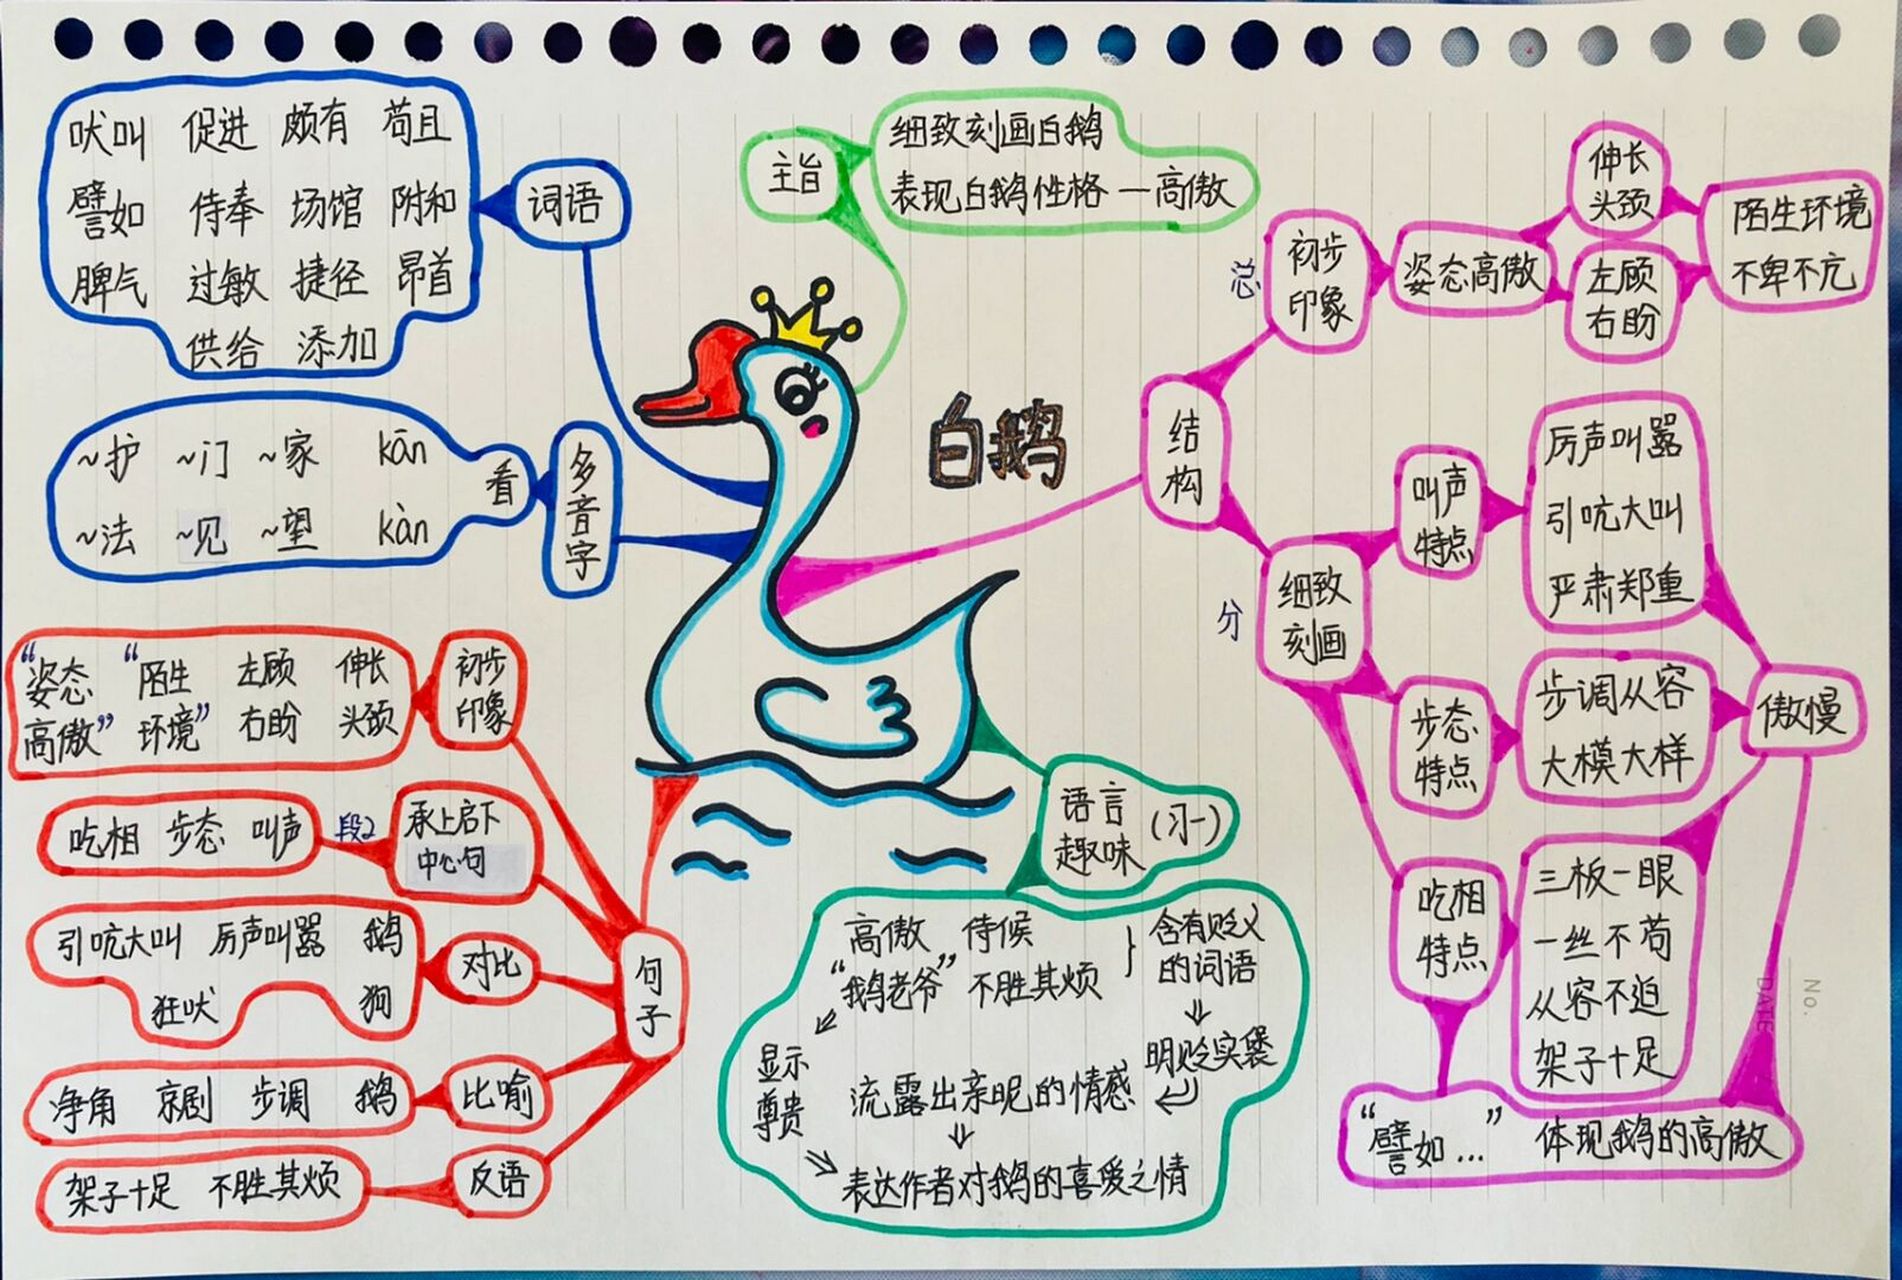 白鹅
词语
吠叫 促进 颇有 苟且
譬如 侍奉 场馆 附和
脾气 过敏 捷径 昂首
供给 添加
多音字
看
~护 ~门 ~家 kān
~法 ~见 ~望 kàn
主旨
细致刻画白鹅
表现白鹅性格—高傲
结构
总
初步
印象
姿态高傲
伸长
头颈
左顾
右盼
陌生环境
不卑不亢
分
细致
刻画
叫声
特点
厉声叫嚣
引吭大叫
严肃郑重
步态
特点
步调从容
大模大样
傲慢
吃相
特点
三板一眼
一丝不苟
从容不迫
架子十足
“譬如...” 体现鹅的高傲
句子
初步
印象
“姿态 “陌生 左顾 伸长
高傲” 环境” 右盼 头颈
承上启下
中心句
段2
吃相 步态 叫声
对比
引吭大叫 厉声叫嚣 鹅
狂吠 狗
比喻
净角 京剧 步调 鹅
反语
架子十足 不胜其烦
语言
趣味
(习一)
高傲 侍候
“鹅老爷” 不胜其烦
}
含有贬义
的词语
⇓
明贬实褒
显示
尊贵
流露出亲昵的情感
⇓
表达作者对鹅的喜爱之情
No.
DATE